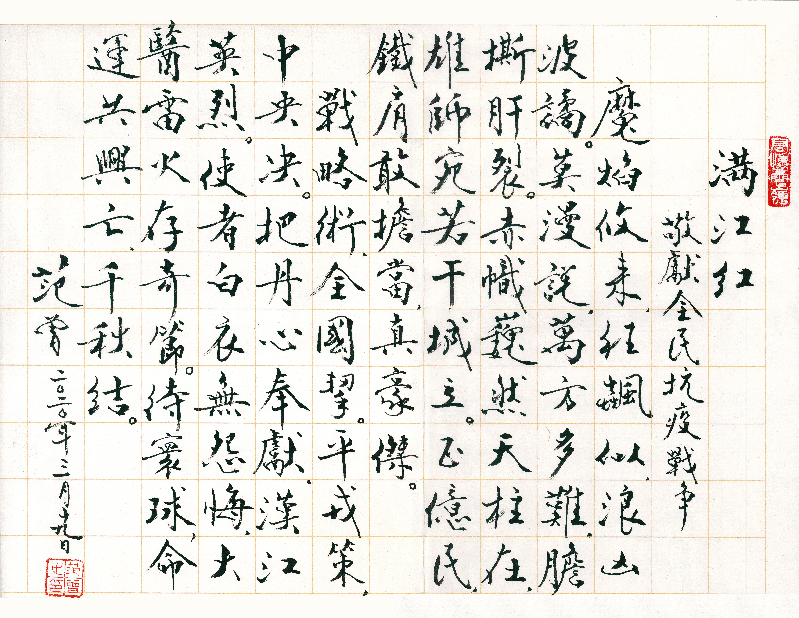 满江红
敬獻全民抗疫戰争
魔焰攸来,狂飆似浪,凶
波譎。莫漫説,萬方多難,膽
撕肝裂。赤幟巍然天柱在,
雄師宛若干城立。正億民,
鐵肩敢擔當,真豪傑。
戰略術,全國擧。平戎策,
中央决。把丹心奉獻,漢江
英烈。使者白衣無怨悔,大
醫雷火存奇節。待寰球,命
運共興亡,千秋結。
范曾二〇二〇年三月十九日